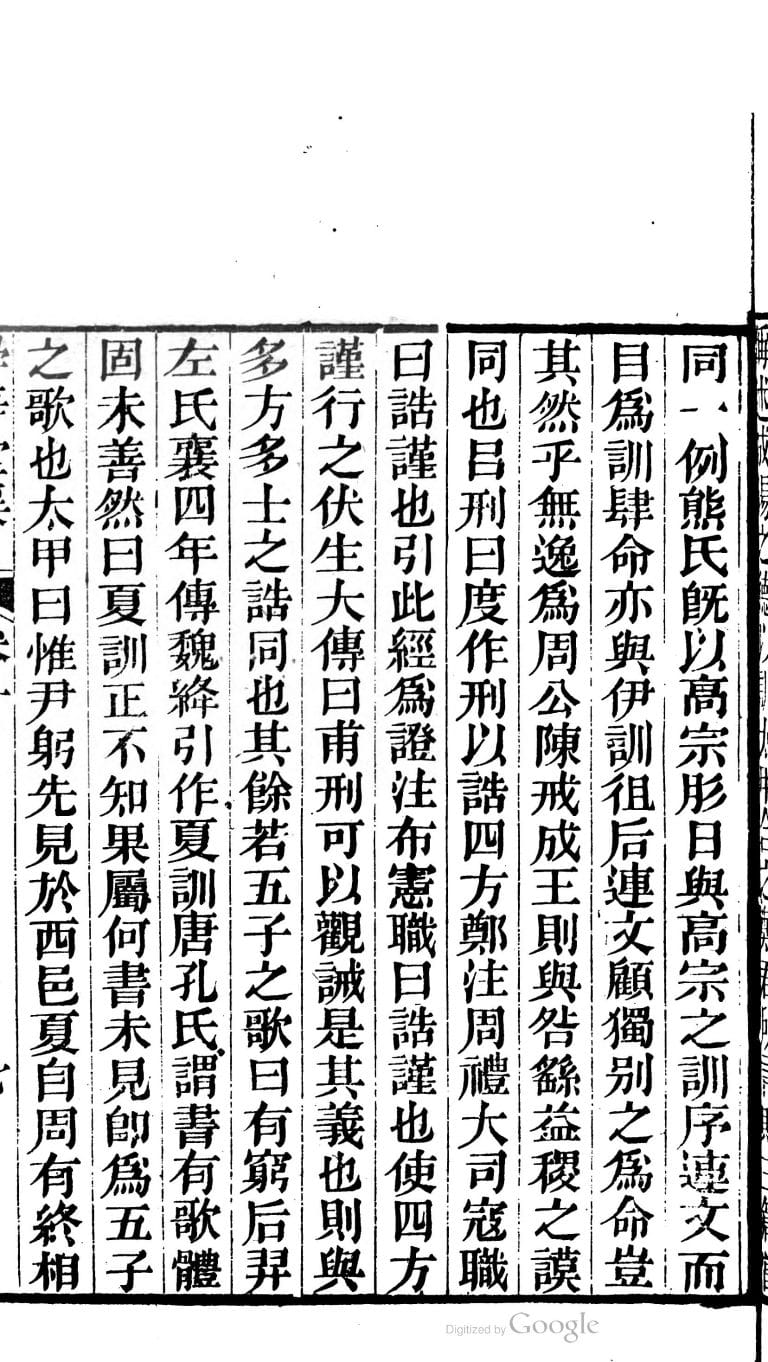 同一例熊氏旣以高宗肜日與高宗之訓序連文而
目爲訓肆命亦與伊訓徂后連文顧獨别之爲命豈
其然乎無逸爲周公陳戒成王則與咎繇益稷之謨
同也呂刑曰度作刑以誥四方鄭注周禮大司寇職
曰誥謹也引此經爲證注布憲職曰誥謹也使四方
謹行之伏生大傳曰甫刑可以觀誡是其義也則與
多方多士之誥同也其餘若五子之歌曰有窮后羿
左氏襄四年傳魏絳引作夏訓唐孔氏謂書有歌體
固未善然曰夏訓正不知果屬何書未見卽爲五子
之歌也太甲曰惟尹躬先見於西邑夏自周有終相
Digitized by Google